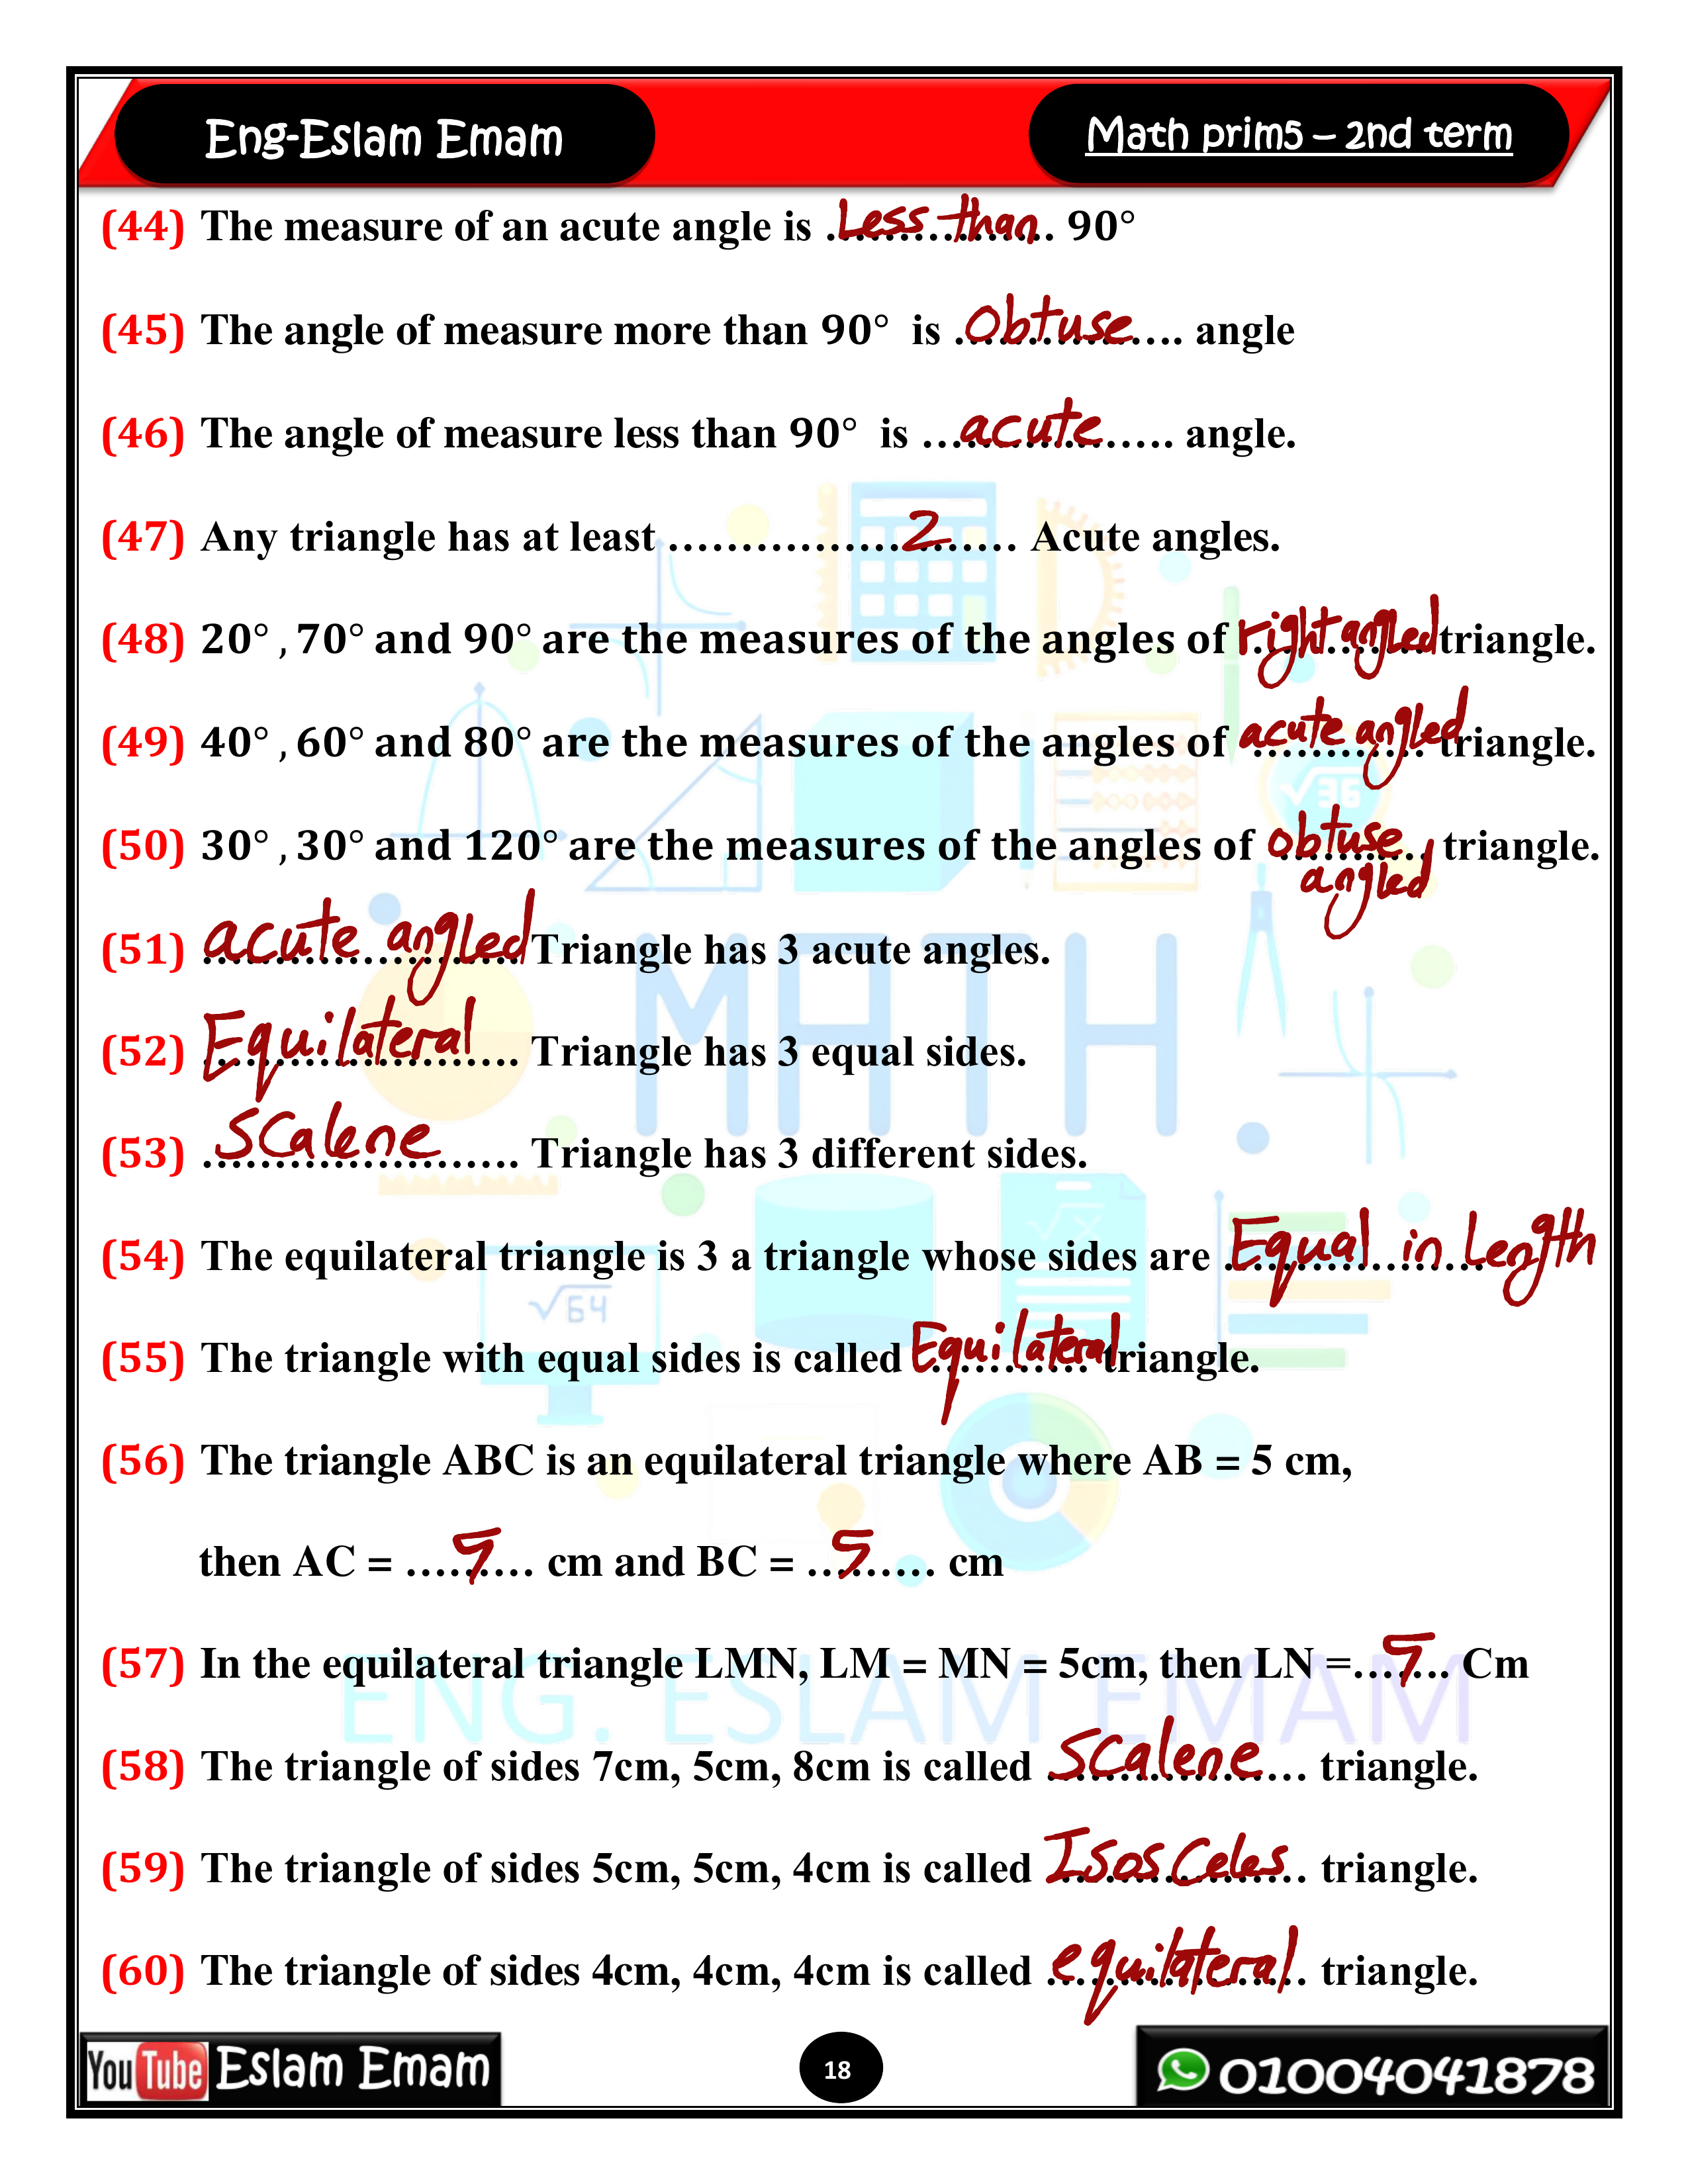 Eng-Eslam Emam
Math prim5 – 2nd term
(44) The measure of an acute angle is Less than 90°
(45) The angle of measure more than 90° is Obtuse angle
(46) The angle of measure less than 90° is acute angle.
(47) Any triangle has at least 2 Acute angles.
(48) 20° , 70° and 90° are the measures of the angles of right angled triangle.
(49) 40° , 60° and 80° are the measures of the angles of acute angled triangle.
(50) 30° , 30° and 120° are the measures of the angles of obtuse angled triangle.
(51) acute angled Triangle has 3 acute angles.
(52) Equilateral Triangle has 3 equal sides.
(53) Scalene Triangle has 3 different sides.
(54) The equilateral triangle is 3 a triangle whose sides are Equal in Length
(55) The triangle with equal sides is called Equilateral triangle.
(56) The triangle ABC is an equilateral triangle where AB = 5 cm,
then AC = 5 cm and BC = 5 cm
(57) In the equilateral triangle LMN, LM = MN = 5cm, then LN = 5 Cm
(58) The triangle of sides 7cm, 5cm, 8cm is called Scalene triangle.
(59) The triangle of sides 5cm, 5cm, 4cm is called IsosCeles triangle.
(60) The triangle of sides 4cm, 4cm, 4cm is called equilateral triangle.
√36
MATH
√64
√x
ENG. ESLAM EMAM
YouTube Eslam Emam
18
01004041878